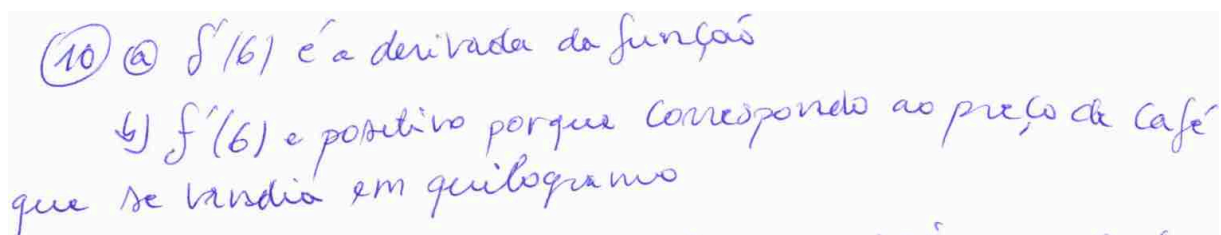 (10) (a) f'(6) é a derivada da função
b) f'(6) e positivo porque correspondo ao preço de café
que se vendia em quilogramo